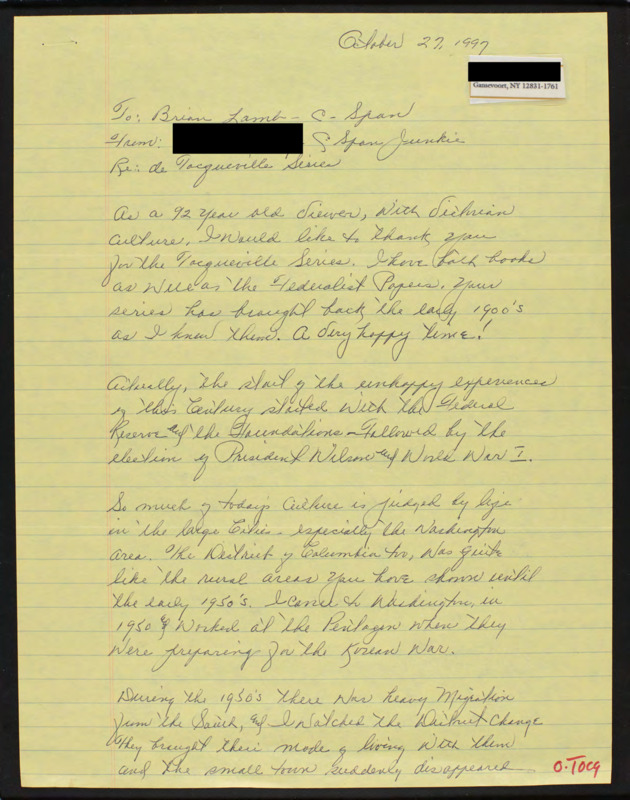 October 27, 1997
Gansevoort, NY 12831-1761
To: Brian Lamb - C-Span
From: C Span Junkie
Re: de Tocqueville Series
As a 92 year old viewer, with Victorian
culture, I would like to thank you
for the Tocqueville Series. I have both books
as well as the Federalist Papers. Your
series has brought back the early 1900's
as I knew them. A very happy time!
Actually, the start of the unhappy experiences
of this Century started with the Federal
Reserve and the Foundations - followed by the
election of President Wilson and World War I.
So much of todays culture is judged by life
in the large Cities - especially the Washington
area. The District of Columbia too, was quite
like the rural areas you have shown until
the early 1950's. I came to Washington, in
1950 & worked at the Pentagon when they
were preparing for the Korean War.
During the 1950's there was heavy migration
from the South, and I watched the District change
They brought their mode of living with them
and the small town suddenly disappeared
O. TOCQ